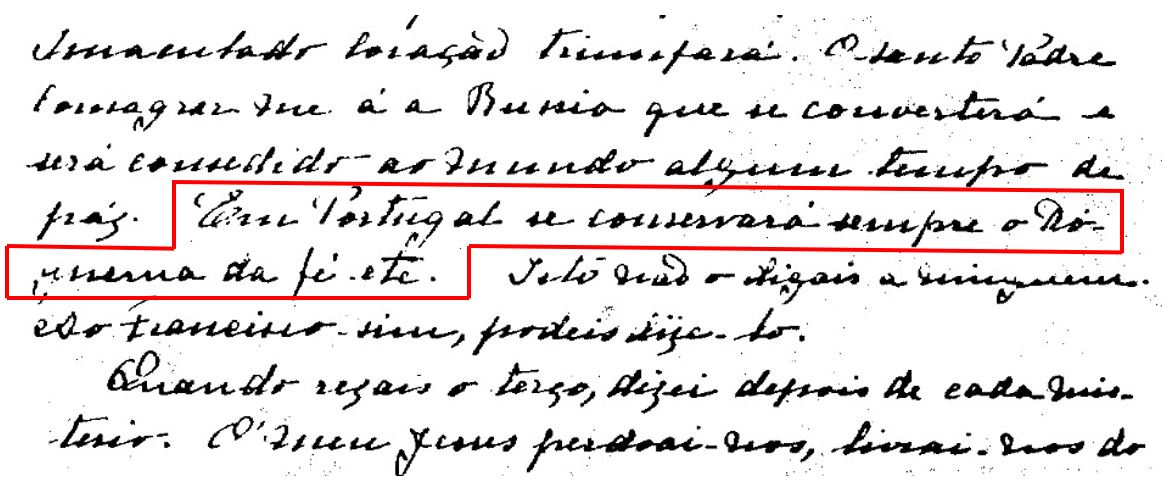 Imaculado Coração triunfará. O santo Padre
consagrar-me-á a Russia que se converterá e
será consedido ao mundo algum tempo de
páz. Em Portugal se conservará sempre o Dó-
guema da fé etc. Isto não o digais a minguem.
Ao Francisco sim, podeis dize-lo.
Quando rezais o terço, dizei depois de cada mis-
terio. O' meu Jesus perdoai-nos, livrai-nos do